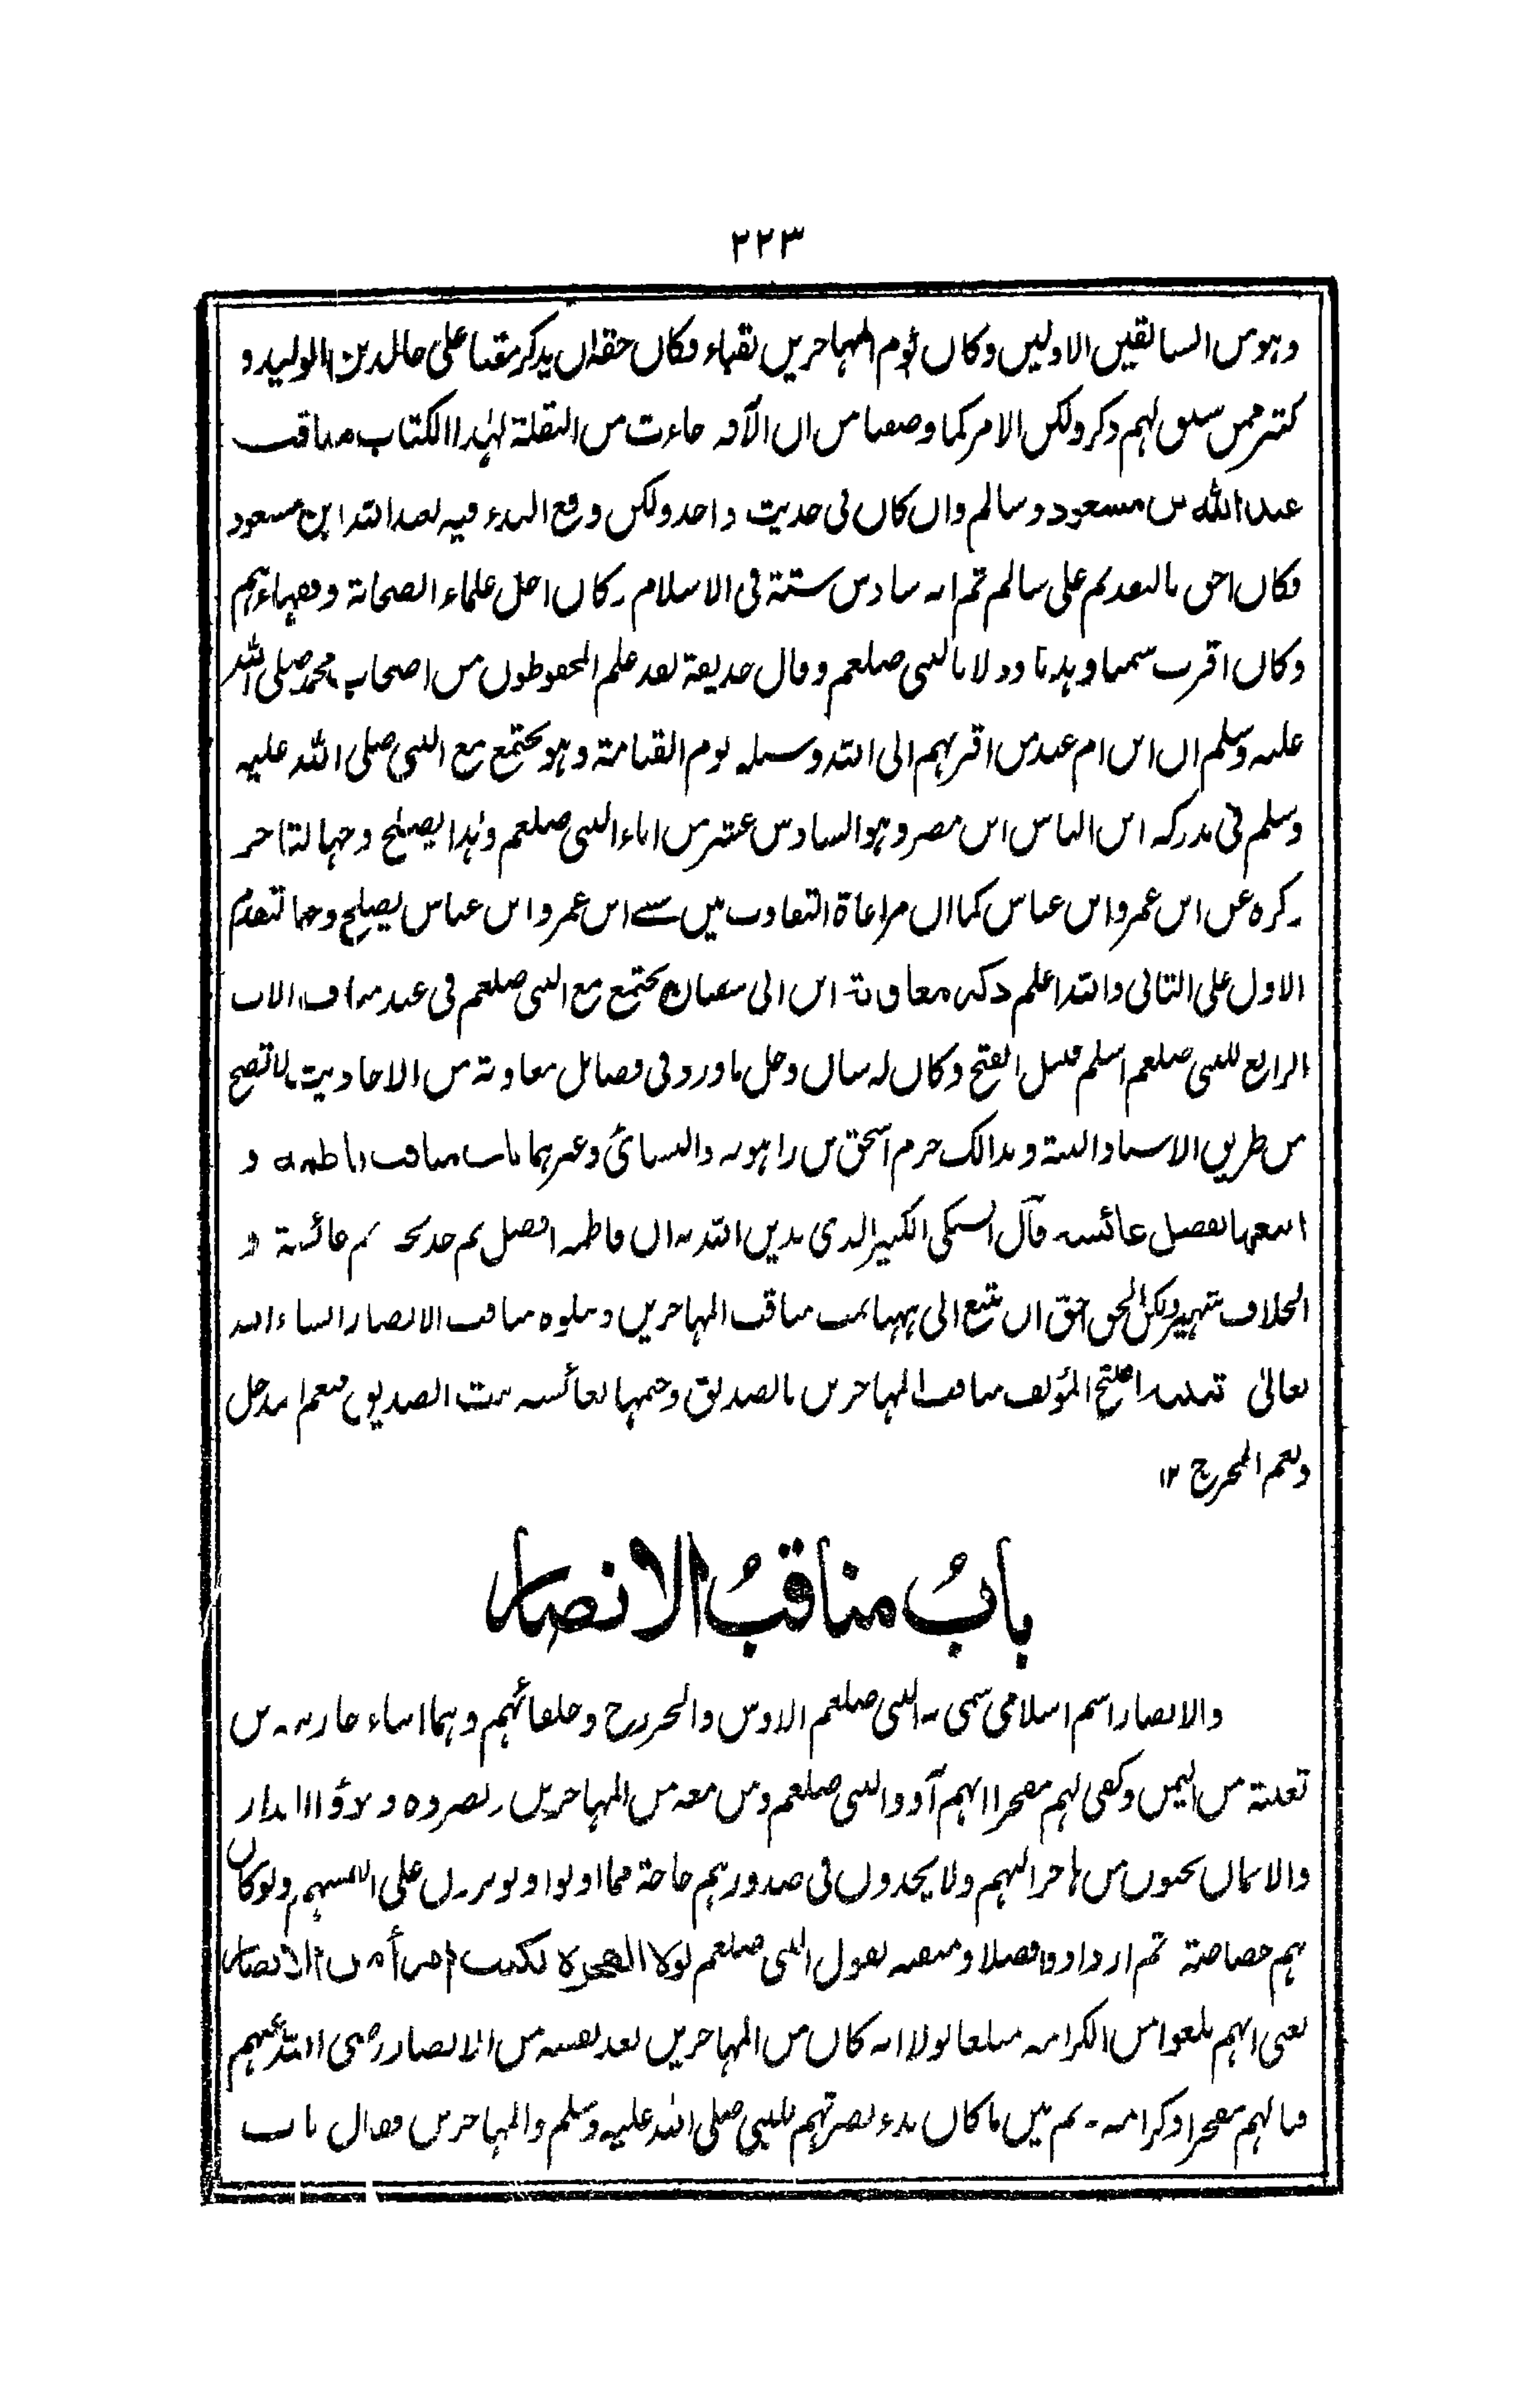 ٢٢٣
وهو من السابقين الاولين وكان يوم المهاجرين بقباء فكان حقه ان يذكر مقدما على خالد بن الوليد و
كثير ممن سبق لهم ذكر ولكن الامر كما وصفنا من ان الآفة جاءت من النقلة لهذا الكتاب مناقب
عبد الله بن مسعود وسالم وان كان فى حديث واحد ولكن وقع البدء فيه لعبد الله ابن مسعود
فكان احق بالتقديم على سالم ثم انه سادس ستة فى الاسلام وكان اجل علماء الصحابة وفقهاءهم
وكان اقرب سمتا وهديا ودلا بالنبى صلعم وقال حذيفة لقد علم المحفوظون من اصحاب محمد صلى الله
عليه وسلم ان ابن ام عبد من اقربهم الى الله وسيلة يوم القيامة وهو يجتمع مع النبى صلى الله عليه
وسلم فى مدركة ابن الياس ابن مضر وهو السادس عشر من اباء النبى صلعم وهذا يصلح وجها لتاخر
ذكره عن ابن عمر وابن عباس كما ان مراعاة التقارب بين سے ابن عمر وابن عباس يصلح وجها لتقدم
الاول على الثانى والله اعلم ذكر معاوية ابن ابى سفيان يجتمع مع النبى صلعم فى عبد مناف الاب
الرابع للنبى صلعم اسلم قبل الفتح وكان له شان وجل ما ورد فى فضائل معاوية من الاحاديث لا تصح
من طريق الاسناد البتة وبذالك جزم اسحق بن راهويه والنسائى وغيرهما باب مناقب فاطمة و
اتبعها بفضل عائشة قال السبكى الكبير الذى ندين الله به ان فاطمة افضل ثم خديجة ثم عائشة و
الخلاف شهير ولكن الحق احق ان يتبع الى ههنا تمت مناقب المهاجرين ويتلوه مناقب الانصار انشاء الله
تعالى تنبيه افتتح المؤلف مناقب المهاجرين بالصديق وختمها بعائشة بنت الصديق فنعم المدخل
ونعم المخرج ١٢
بابُ مناقبُ الانصار
والانصار اسم اسلامى سمى به النبى صلعم الاوس والخزرج وحلفائهم وهما ابناء حارثة بن
ثعلبة من اليمن وكفى لهم مفخرا انهم آووا النبى صلعم ومن معه من المهاجرين ونصروه وتبوؤا الدار
والايمان يحبون من هاجر اليهم ولا يجدون فى صدورهم حاجة مما اوتوا ويؤثرون على انفسهم ولو كان
بهم خصاصة ثم ازدادوا فضلا ومنقبة بقول النبى صلعم لولا الهجرة لكنت امرأ من الانصار
يعنى انهم بلغوا من الكرامة مبلغا لولا انه كان من المهاجرين لعد نفسه من الانصار رضى الله عنهم
فيا لهم مفخرا وكرامة - ثم بين ما كان بدء نصرتهم للنبى صلى الله عليه وسلم والمهاجرين فقال باب